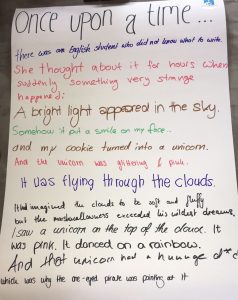 Once upon a time...
there was an English student who did not know what to write.
She thought about it for hours when
suddenly something very strange
happened:
A bright light appeared in the sky.
Somehow it put a smile on my face..
and my cookie turned into a unicorn.
And the unicorn was glittering & pink.
It was flying through the clouds.
He had imagined the clouds to be soft and fluffy
but the marshmallowness exceeded his wildest dreams.
I saw a unicorn on the top of the cloud. It
was pink. It danced on a rainbow.
And that unicorn had a hunnge d*c
which was why the one-eyed pirate was pointing at it